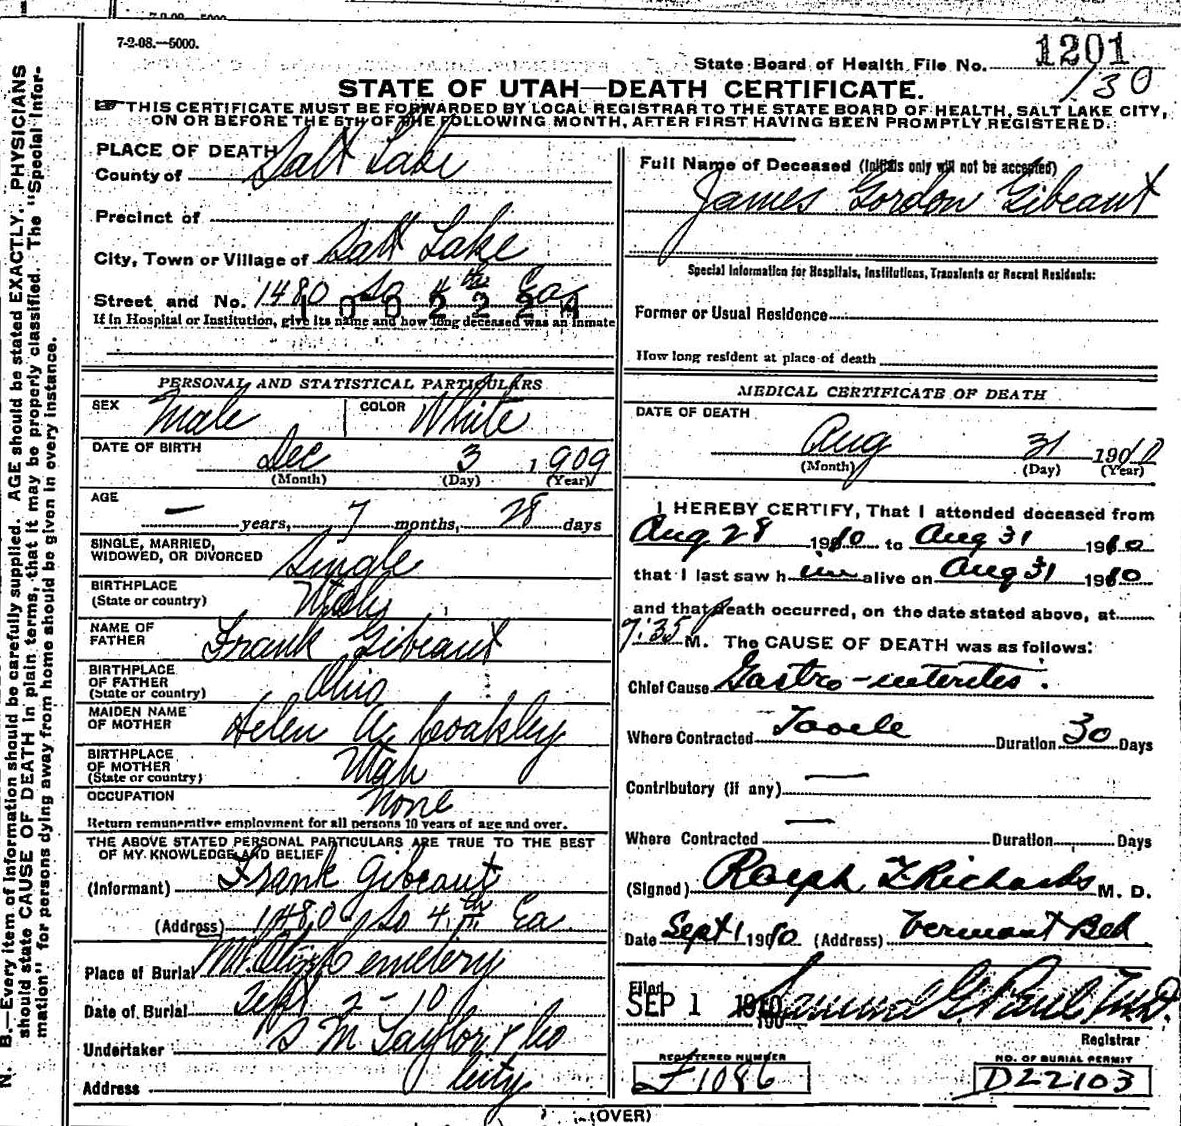 7-2-08.—5000.
State Board of Health File No. 1201
130
STATE OF UTAH—DEATH CERTIFICATE.
THIS CERTIFICATE MUST BE FORWARDED BY LOCAL REGISTRAR TO THE STATE BOARD OF HEALTH, SALT LAKE CITY,
ON OR BEFORE THE 5TH OF THE FOLLOWING MONTH, AFTER FIRST HAVING BEEN PROMPTLY REGISTERED.
PLACE OF DEATH
County of Salt Lake
Precinct of
City, Town or Village of Salt Lake
Street and No. 1480 So 4th Ea
1002224
If in Hospital or Institution, give its name and how long deceased was an inmate
PERSONAL AND STATISTICAL PARTICULARS
SEX Male COLOR White
DATE OF BIRTH Dec 3 1909
(Month) (Day) (Year)
AGE — years, 7 months, 28 days
SINGLE, MARRIED,
WIDOWED, OR DIVORCED Single
BIRTHPLACE
(State or country) Utah
NAME OF
FATHER Frank Gibeaut
BIRTHPLACE
OF FATHER
(State or country) Ohio
MAIDEN NAME
OF MOTHER Helen A. Coakley
BIRTHPLACE
OF MOTHER
(State or country) Utah
OCCUPATION None
Return remunerative employment for all persons 10 years of age and over.
THE ABOVE STATED PERSONAL PARTICULARS ARE TRUE TO THE BEST
OF MY KNOWLEDGE AND BELIEF
(Informant) Frank Gibeaut
(Address) 1480 So 4th Ea
Place of Burial Mt. Olivet Cemetery
Date of Burial Sept 2-10
Undertaker S M Taylor & Co
Address City
Full Name of Deceased (Initials only will not be accepted)
James Gordon Gibeaut
Special Information for Hospitals, Institutions, Transients or Recent Residents:
Former or Usual Residence
How long resident at place of death
MEDICAL CERTIFICATE OF DEATH
DATE OF DEATH
Aug 31 1910
(Month) (Day) (Year)
I HEREBY CERTIFY, That I attended deceased from
Aug 28 1910 to Aug 31 1910
that I last saw him alive on Aug 31 1910
and that death occurred, on the date stated above, at
7:35 P M. The CAUSE OF DEATH was as follows:
Chief Cause Gastro-enterites.
Where Contracted Tooele Duration 30 Days
Contributory (if any) —
Where Contracted — Duration Days
(Signed) Ralph T Richards M. D.
Date Sept 1 1910 (Address) Vermont Bld
Filed
SEP 1 1910 Samuel G. Paul M.D.
190
Registrar
REGISTERED NUMBER
F1086
NO. OF BURIAL PERMIT
D22103
(OVER)
N. B.—Every item of information should be carefully supplied. AGE should be stated EXACTLY. PHYSICIANS
should state CAUSE OF DEATH in plain terms, that it may be properly classified. The "Special Infor-
mation" for persons dying away from home should be given in every instance.